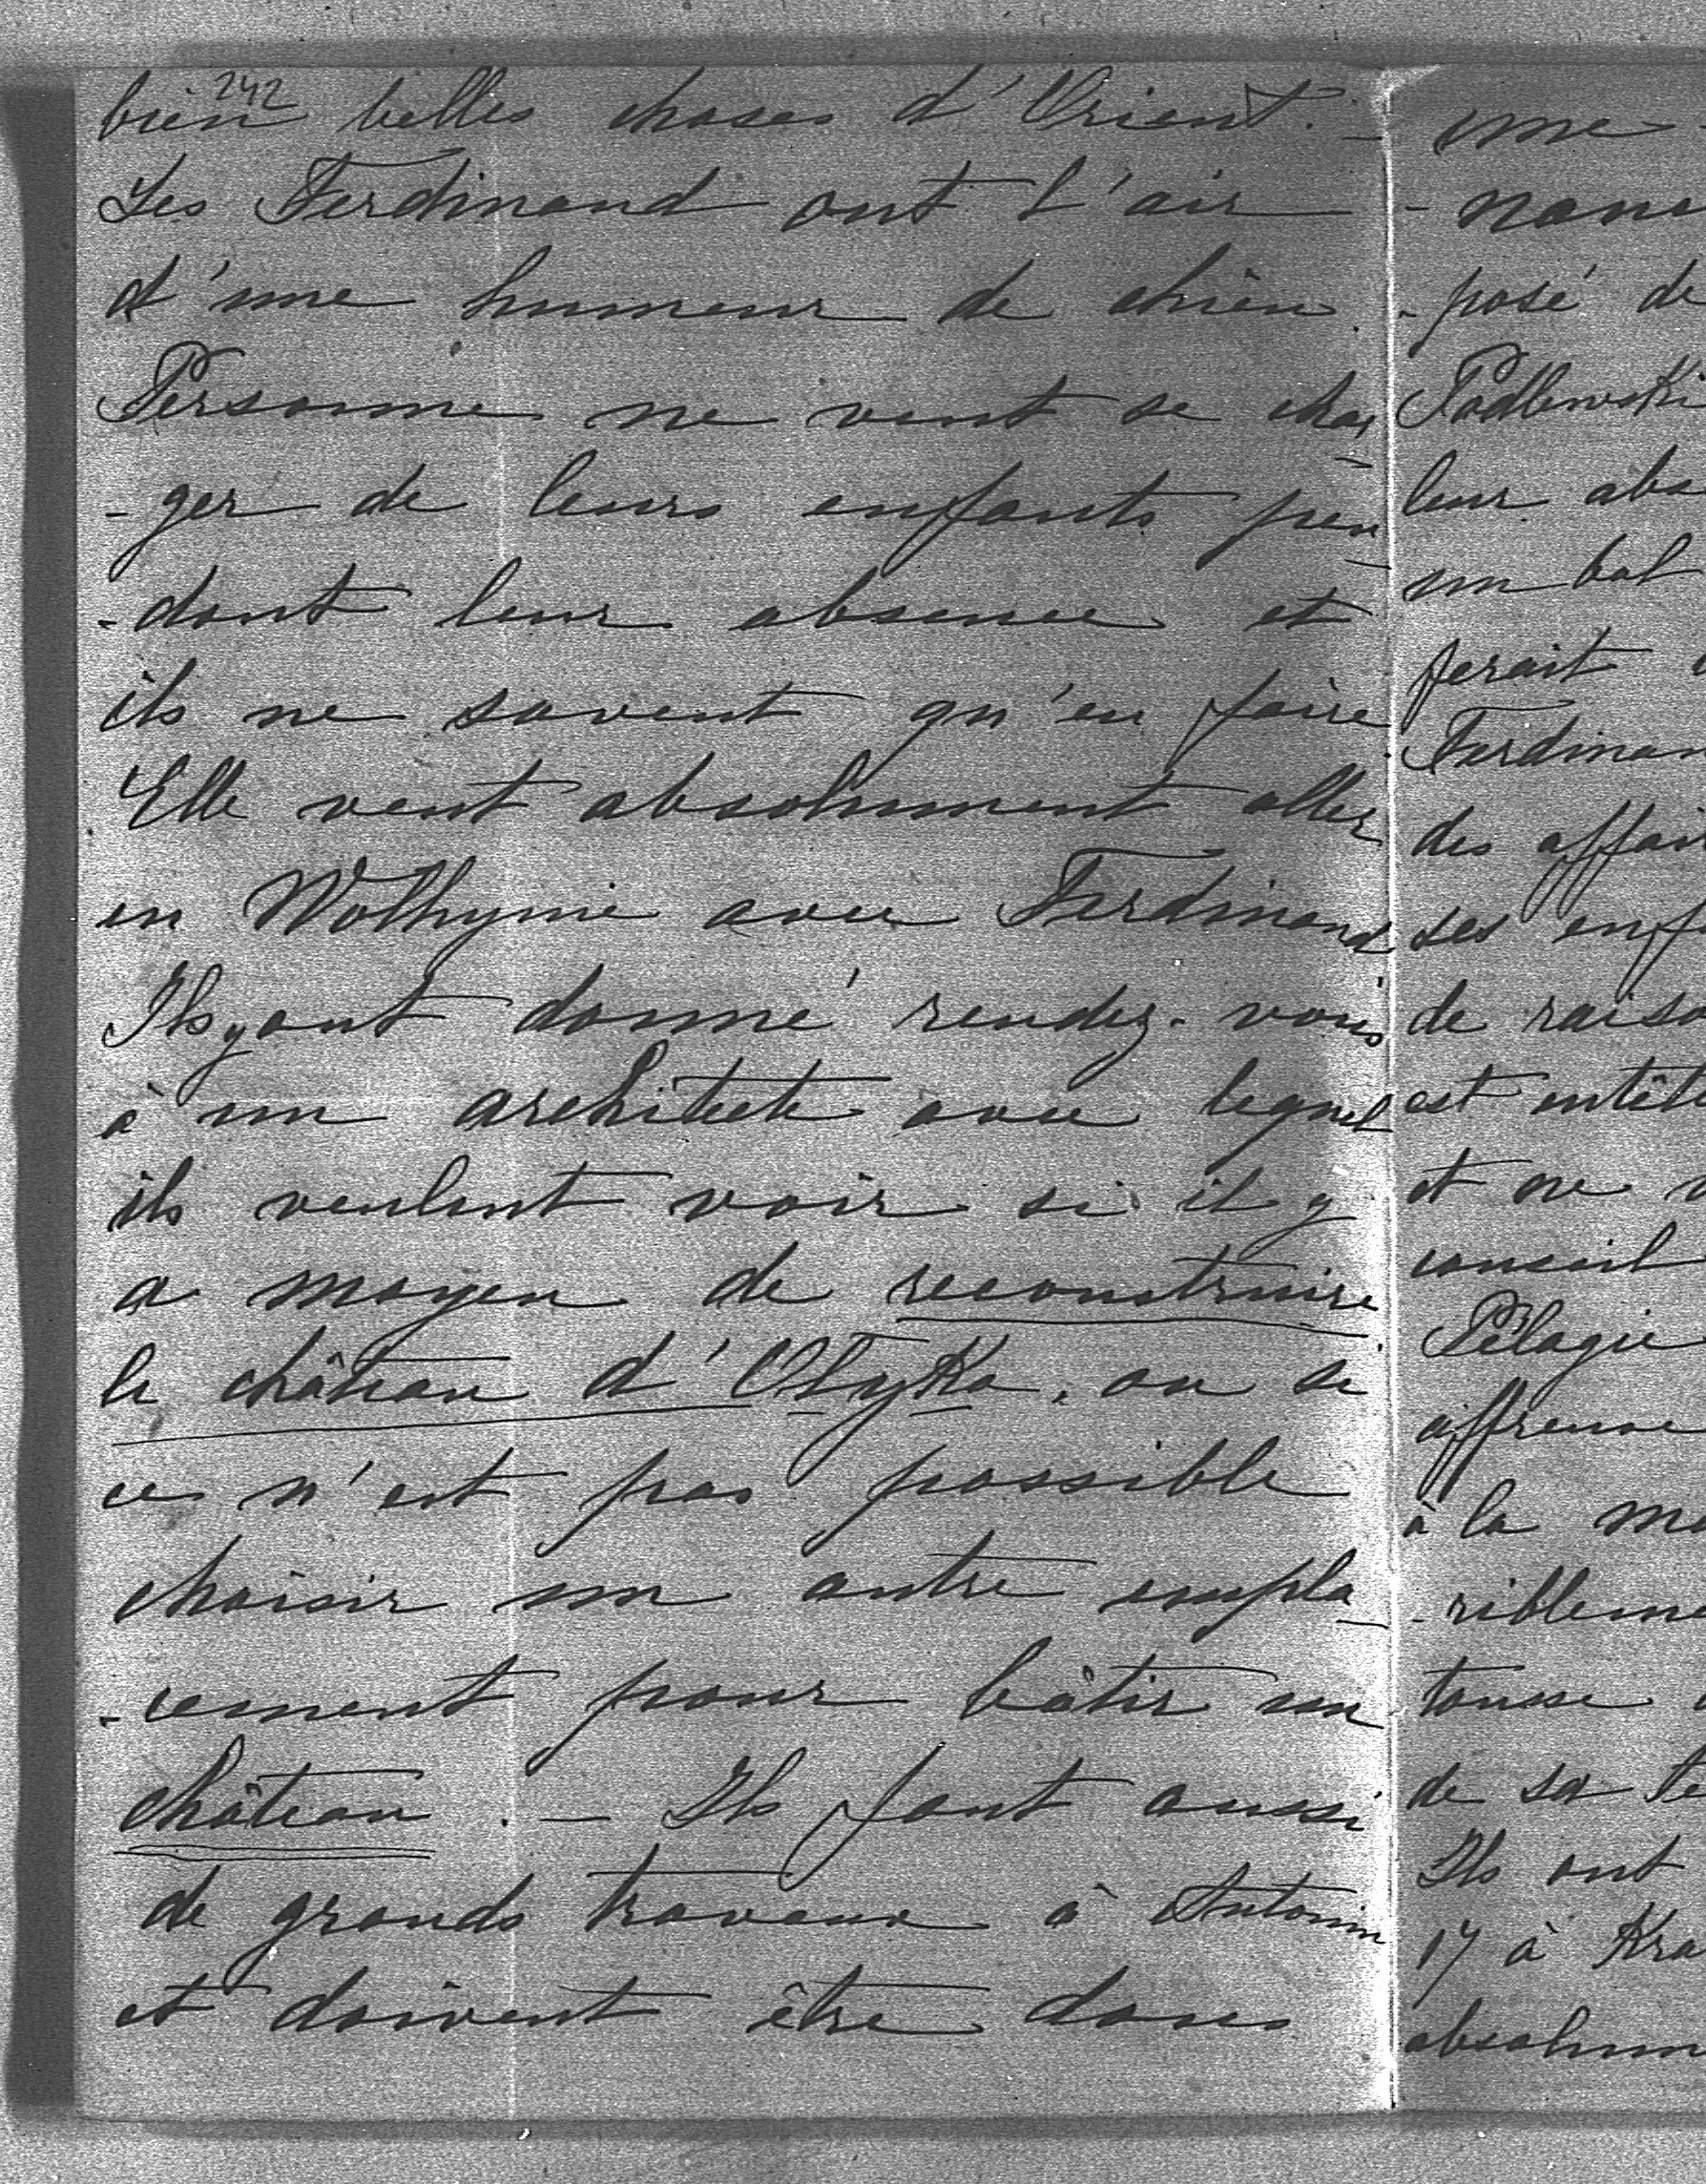 242
bien belles choses d'Orient. -
Les Ferdinand ont l'air
d'une humeur de chien.
Personne ne veut se char
- ger de leurs enfants pen
- dant leur absence et
ils ne savent qu'en faire.
Elle veut absolument aller
en Wolhynie avec Ferdinand
Ils y ont donné rendez-vous
à un architecte avec lequel
ils veulent voir si il y
a moyen de reconstruire
le château d'Olyka, ou si
ce n'est pas possible
choisir un autre empla
- cement pour bâtir un
château. - Ils font aussi
de grands travaux à Antonin
et doivent être dans
une
- nanc
- posé de
Podlewski
leur abs
un bal
ferait
Ferdinan
des affair
ses enf
de raiso
est entêt
et ne
conseil
Pélagie
affreuse
à la m
- ribleme
tousse
de sa
Ils ont
17 à Kra
absolum